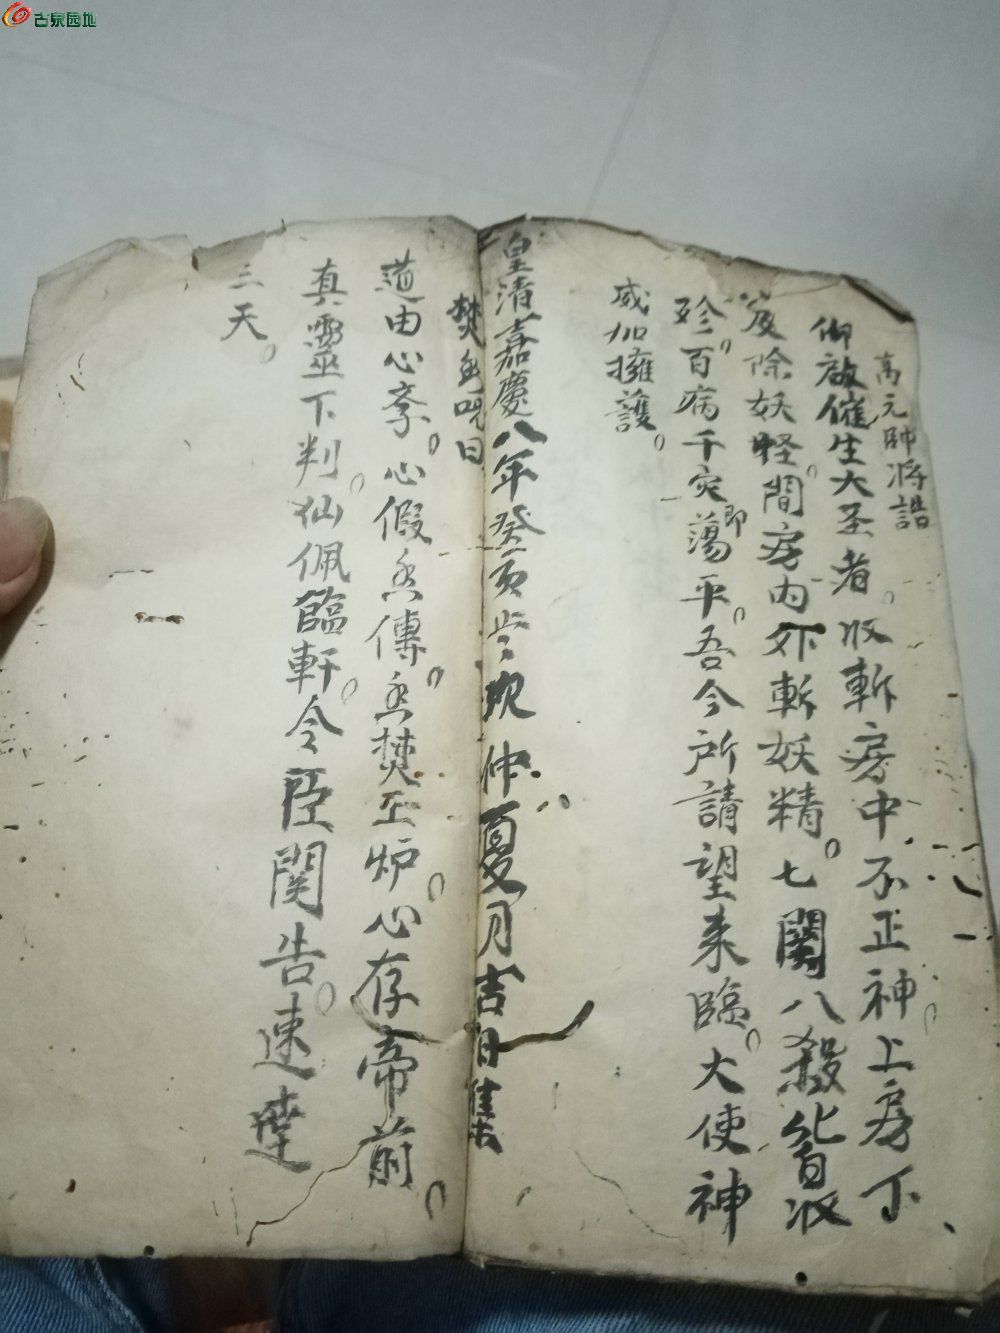 古泉园地
高元帥将諎
仰啟催生大圣者。收斬房中不正神。上房下
房除妖怪。間房内外斬妖精。七關八殺皆收
殄。百病千灾即蕩平。吾今所請望来臨。大使神
威加擁護。
皇清嘉慶八年癸亥歲次仲夏月吉日集
焚香咒曰
道由心斈。心假香傳。香焚玉炉。心存帝前。
真靈下判。仙佩臨軒。令臣関告。速達
三天。